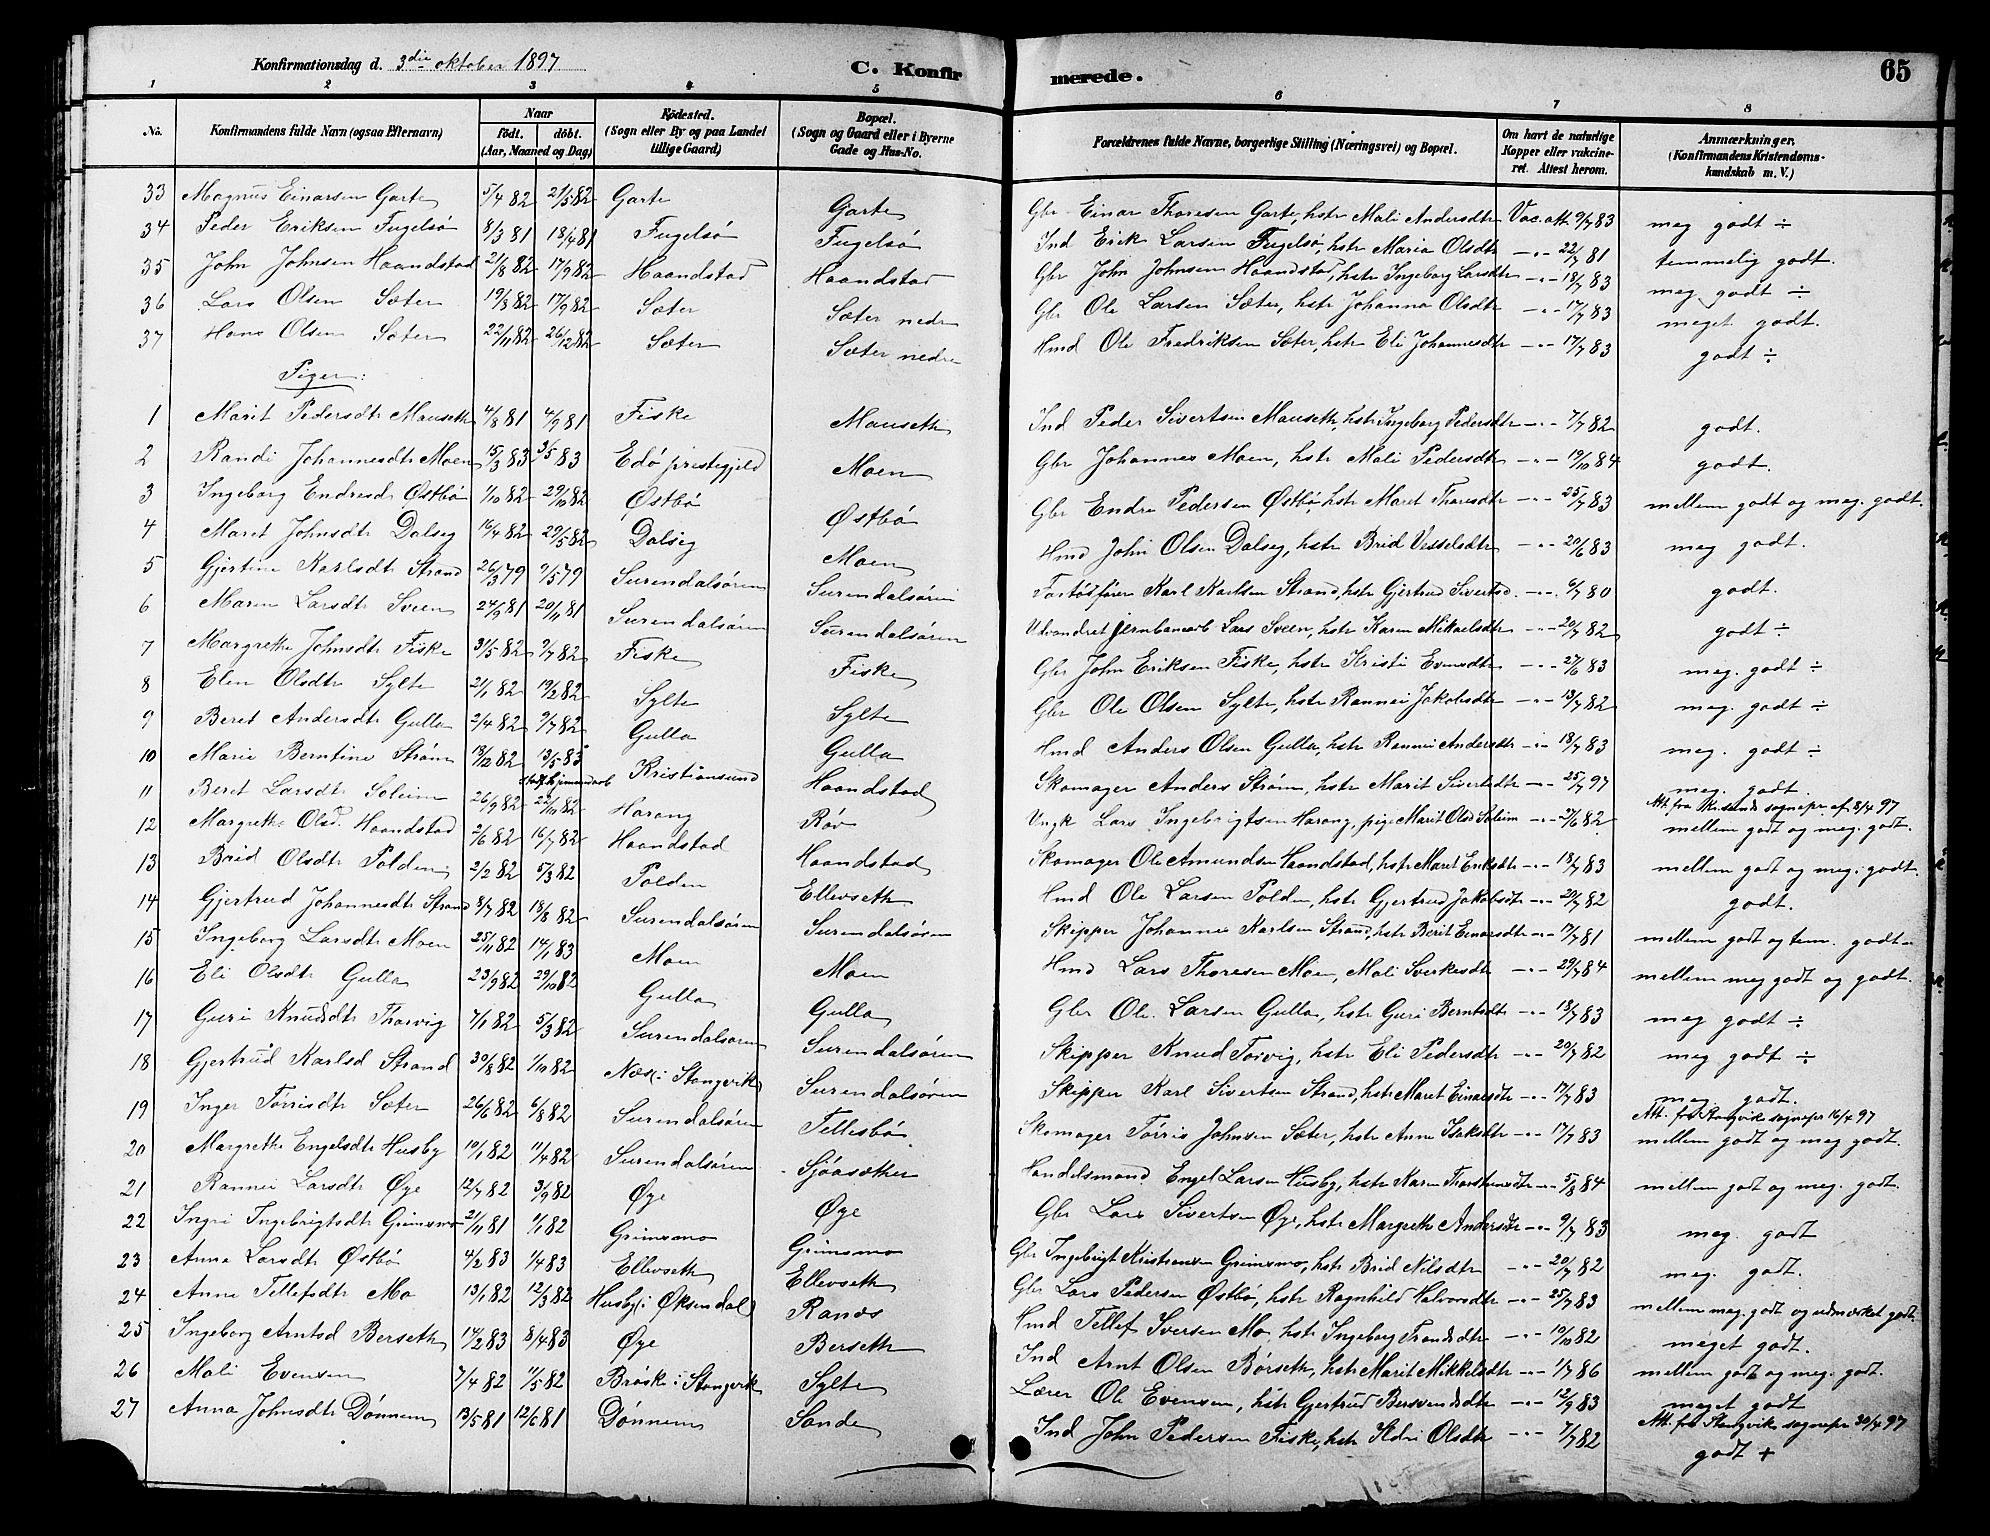 Konfirmationsdag d. 3die oktober 1897 C. Konfirmerede. 65
1 2 3 4 5 6 7 8
No. Konfirmandens fulde Navn (ogsaa Efternavn) Naar födt. döbt. (Aar, Maaned og Dag) Födested. (Sogn eller By og paa Landet tillige Gaard) Bopæl. (Sogn og Gaard eller i Byerne Gade og Hus-No. Forældrenes fulde Navne, borgerlige Stilling (Næringsvei) og Bopæl. Om havt de naturlige Kopper eller vakcineret. Attest herom. Anmærkninger. (Konfirmandens Kristendomskundskab m. V.)
33 Magnus Einarsen Garte 5/4 82 21/5 82 Garte Garte Gbr Einar Thoresen Garte, hstr Mali Andersdtr Vac. att. 9/7 83 meg godt ÷
34 Peder Eriksen Fugelsø 8/3 81 18/4 81 Fugelsø Fugelsø Ind Erik Larsen Fugelsø, hstr Maria Olsdtr -"- 22/7 81 temmelig godt.
35 John Johnsen Haandstad 21/8 82 17/9 82 Haandstad Haandstad Gbr John Johnsen Haandstad, hstr Ingeborg Larsdtr -"- 18/7 83 meg godt ÷
36 Lars Olsen Sæter 19/8 82 17/9 82 Sæter Sæter nedre Gbr Ole Larsen Sæter, hstr Johanna Olsdtr -"- 17/7 83 meget godt.
37 Hans Olsen Sæter 22/11 82 26/12 82 Sæter Sæter nedre Hmd Ole Fredriksen Sæter, hstr Eli Johannesdtr -"- 17/7 83 godt ÷
Piger:
1 Marit Pedersdtr Mauseth 4/8 81 4/9 81 Fiske Mauseth Ind Peder Sivertsen Mauseth, hstr Ingeborg Pedersdtr -"- 7/7 82 godt.
2 Randi Johannesdtr Moen 15/3 83 3/5 83 Edø prestegjeld Moen Gbr Johannes Moen, hstr Mali Pedersdtr -"- 19/10 84 godt.
3 Ingeborg Endresd Østbø 1/10 82 29/10 82 Østbø Østbø Gbr Endre Pedersen Østbø, hstr Maret Thoresdtr -"- 25/7 83 mellem godt og meg. godt.
4 Maret Johnsdtr Dalseg 16/4 82 29/5 82 Dalseg Moen Hmd John Olsen Dalseg, hstr Brid Vesselsdtr -"- 20/6 83 meg godt.
5 Gjertine Karlsdtr Strand 26/3 79 9/5 79 Surendalsøren Surendalsøren Karl Karlsen Strand, hstr Gjertrud Sivertsd. -"- 6/7 80 godt.
6 Maren Larsdtr Sveen 24/9 81 20/11 81 Surendalsøren Surendalsøren Udvandret jernbanearb Lars Sveen, hstr Karen Mikaelsdtr -"- 20/7 82 godt ÷
7 Margrethe Johnsdtr Fiske 31/5 82 9/7 82 Fiske Fiske Gbr John Eriksen Fiske, hstr Kristi Evensdtr -"- 27/6 83 meg. godt ÷
8 Elen Olsdtr Sylte 21/1 82 19/2 82 Sylte Sylte Gbr Ole Olsen Sylte, hstr Rannei Jakobsdtr -"- 13/7 82 meg. godt ÷
9 Beret Andersdtr Gulla 2/4 82 9/7 82 Gulla Gulla Hmd Anders Olsen Gulla, hstr Rannei Andersdtr -"- 18/7 83 meg. godt ÷
10 Marie Berntine Strøm 13/12 82 13/5 83 Kristiansund Haandstad Skomager Anders Strøm, hstr Marit Sivertsdtr -"- 25/7 97 meg. godt. Att. fra Kr.sunds sognepr. af 8/4 97
11 Beret Larsdtr Soleim 26/9 82 22/10 82 Harang Røv Ungk Lars Ingebrigtsen Harang, pige Marit Olsd Soleim -"- 27/6 82 mellem godt og meg. godt.
12 Margrethe Olsd. Haandstad 2/6 82 16/7 82 Haandstad Haandstad Skomager Ole Amundsen Haandstad, hstr Maret Eriksdtr -"- 18/7 83 mellem godt og meg. godt.
13 Brid Olsdtr Polden 2/2 82 5/3 82 Polden Ellevseth Hmd Ole Larsen Polden, hstr Gjertrud Jakobsdtr -"- 20/7 82 godt.
14 Gjertrud Johannesdtr Strand 8/7 82 18/8 82 Surendalsøren Surendalsøren Skipper Johannes Karlsen Strand, hstr Berit Einarsdtr -"- 17/7 81 mellem godt og tem. godt
15 Ingeborg Larsdtr Moen 25/11 82 14/1 83 Moen Moen Hmd Lars Thoresen Moen, Mali Sverkesdtr -"- 29/7 84 mellem meg godt og godt.
16 Eli Olsdtr Gulla 23/9 82 29/10 82 Gulla Gulla Gbr Ole Larsen Gulla, hstr Guri Berntsdtr -"- 18/7 83 meg godt ÷
17 Guri Knudsdtr Thorvig 7/1 82 5/3 82 Surendalsøren Surendalsøren Skipper Knud Torvig, hstr Eli Pedersdtr -"- 20/7 82 meg godt ÷
18 Gjertrud Karlsd Strand 30/8 82 1/10 82 Næs i Stangvik Surendalsøren Skipper Karl Sivertsen Strand, hstr Maret Einarsdtr -"- 17/7 83 meg. godt. Att. fra Stangviks sognepr 16/4 97
19 Inger Tørrisdtr Sæter 26/6 82 6/8 82 Surendalsøren Tellesbø Skomager Tørris Johnsen Sæter, hstr Anne Isaksdtr -"- 17/7 83 mellem godt og meg godt.
20 Margrethe Engelsdtr Husby 19/1 82 11/4 82 Surendalsøren Sjøasæther Handelsmand Engel Larsen Husby, hstr Karen Thorstensdtr -"- 5/8 84 mellem godt og meg. godt.
21 Rannei Larsdtr Øye 12/7 82 3/9 82 Øye Øye Gbr Lars Sivertsen Øye, hstr Margrethe Andersdtr -"- 9/7 83 meg. godt
22 Ingri Ingebrigtsdtr Grimsmo 21/11 81 1/1 82 Grimsmo Grimsmo Gbr Ingebrigt Kristiansen Grimsmo, hstr Brid Nilsdtr -"- 20/7 82 meg. godt.
23 Anne Larsdtr Østbø 4/2 83 1/4 83 Ellevseth Ellevseth Gbr Lars Pedersen Østbø, hstr Ragnhild Halvorsdtr -"- 25/7 83 mellem meg. godt og udmærket godt.
24 Anne Tellefsdtr Mo 13/1 82 12/3 82 Husby i Øksendal Ranæs Hmd Tellef Iversen Mo, hstr Ingeborg Trondsdtr -"- 10/10 82 meget godt.
25 Ingeborg Arntsd Berseth 14/2 83 8/4 83 Øye Berseth Ind Arnt Olsen Børseth, hstr Marit Mikkelsdtr -"- 1/7 86 mellem godt og meg. godt.
26 Mali Evensen 7/4 82 11/5 82 Brøske i Stangvik Sylte Lærer Ole Evensen, hstr Gjertrud Bersvendsdtr -"- 12/9 83 meget godt Att. fra Stangvik sognepr 30/4 97
27 Anna Johnsdtr Dønnem 13/5 81 12/6 81 Dønnem Sande Ind John Pedersen Fiske, hstr Ildri Olsdtr -"- 7/7 82 godt +